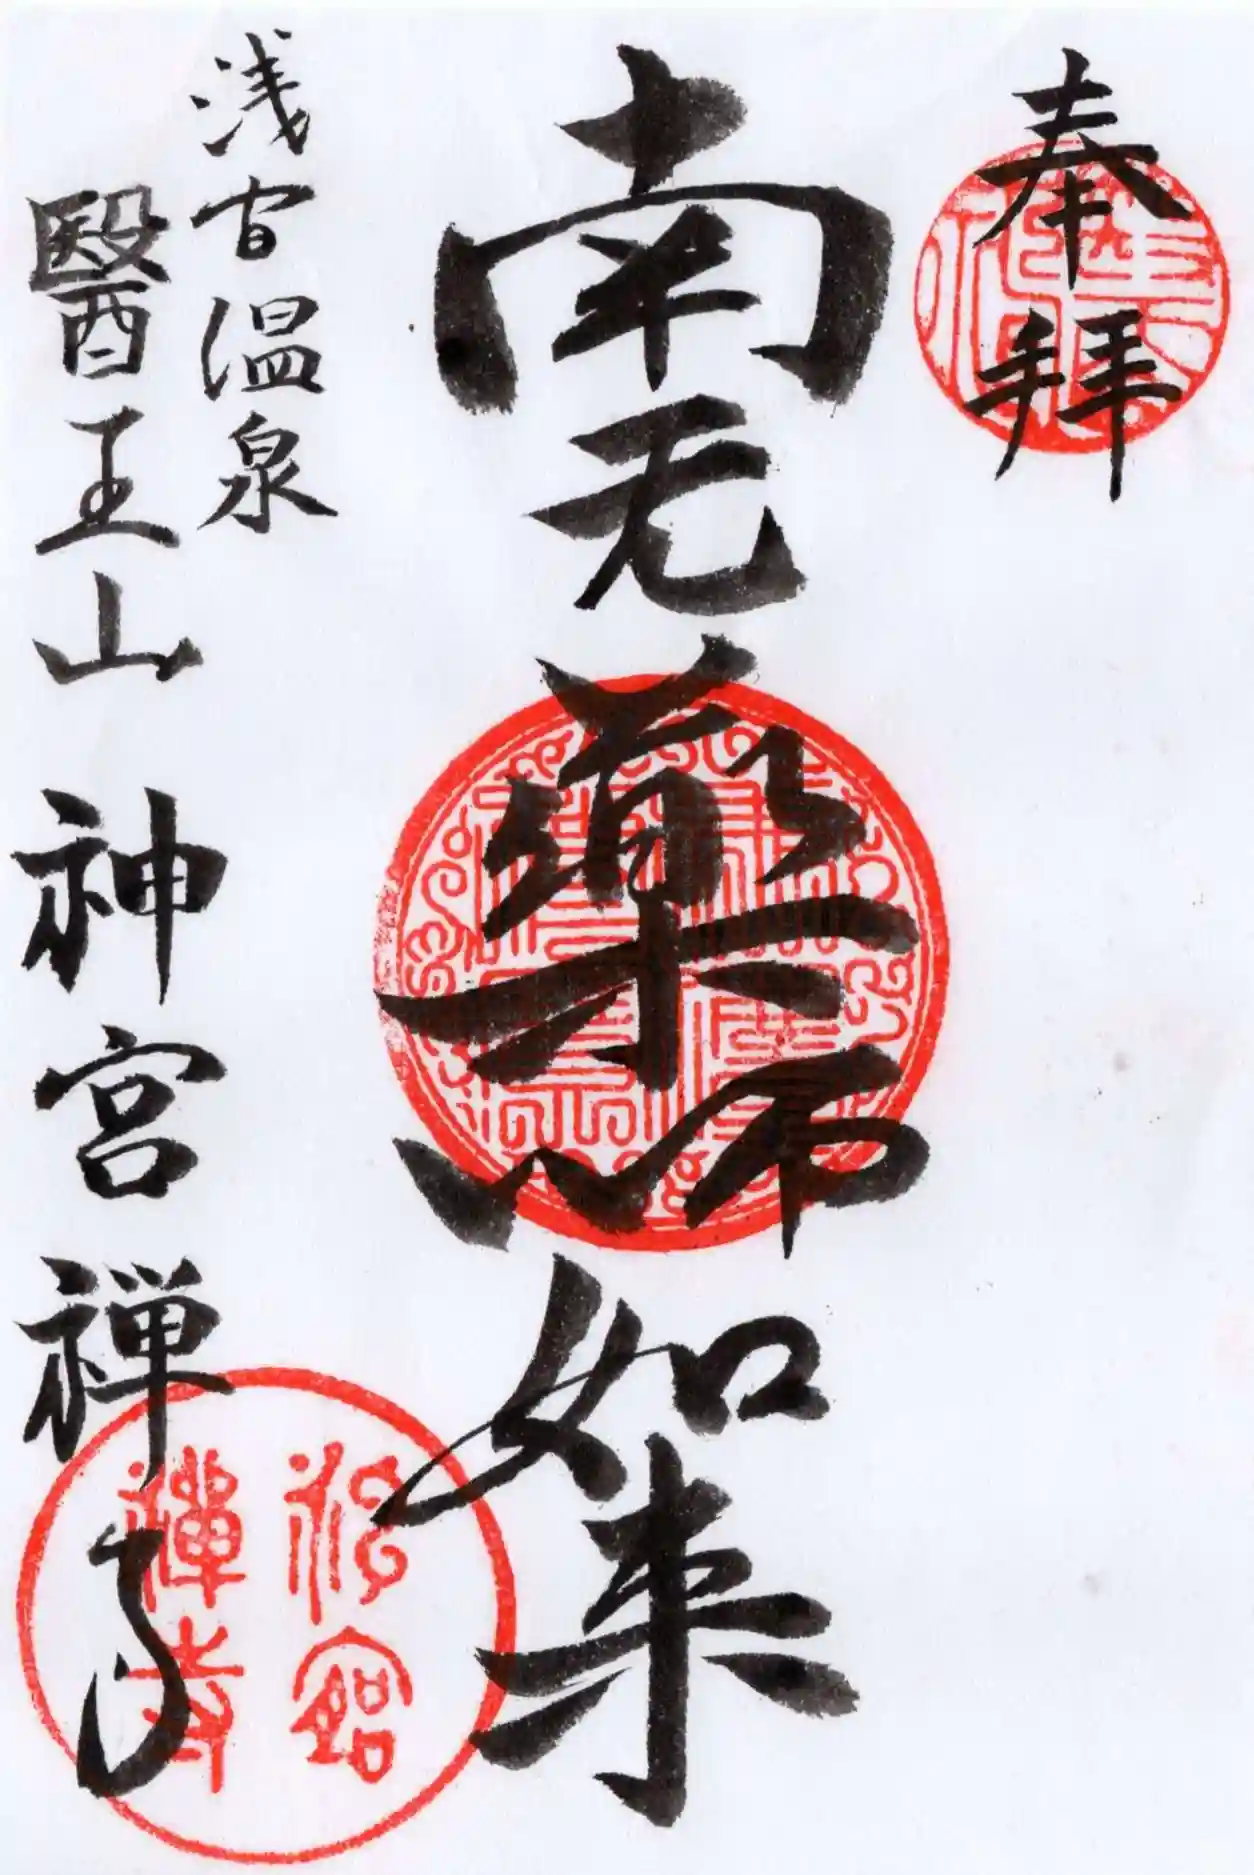 奉拝
南无薬師如来
浅宮温泉
醫王山 神宮禅寺
神宮禅寺